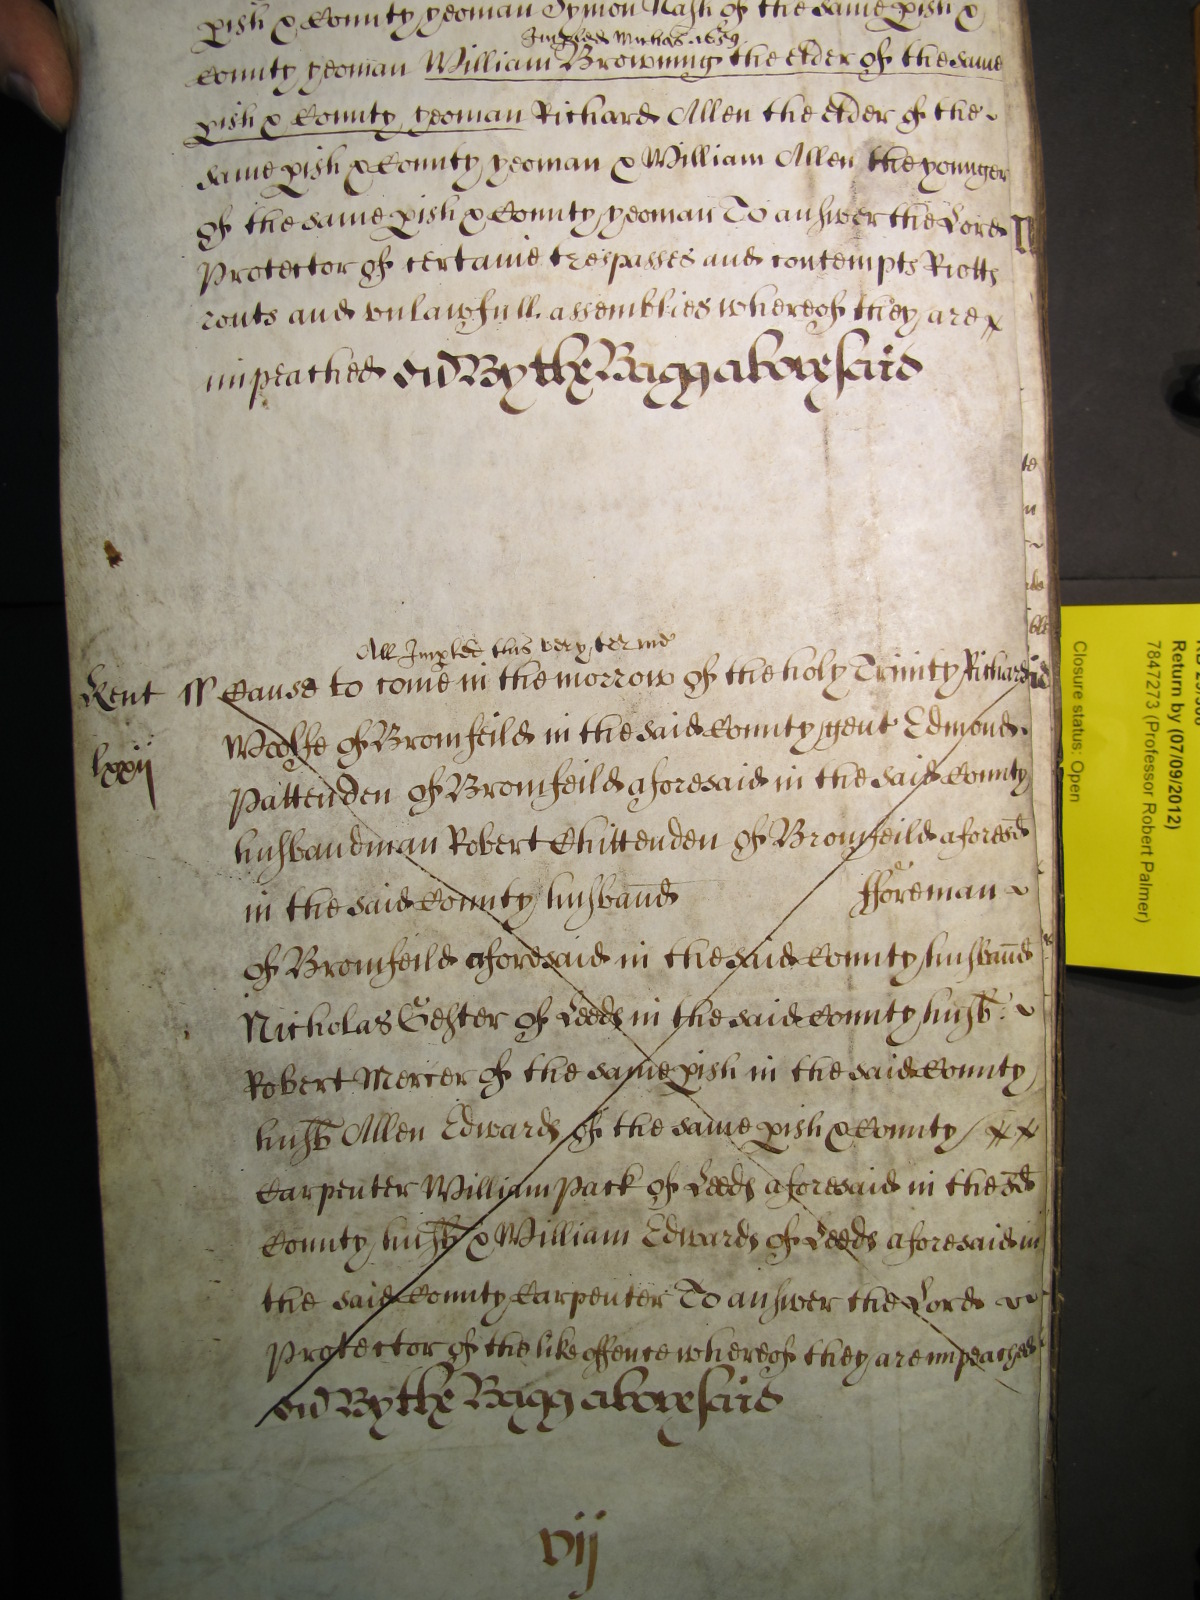 pish & County yeoman Symon Nash of the same pish &
Impled Michas 1659
County yeoman William Browning the elder of the same
pish & County yeoman Richard Allen the elder of the
same pish & County yeoman & William Allen the younger
of the same pish & County yeoman To answer the Lord
Protector of certaine trespasses and contempts Riotts
routs and unlawfull assemblies whereof they are
impeached By the Bagg aboresaid
All Impled this very terme
Kent ss Cause to come in the morrow of the holy Trinity Richard
lxxij
Woolfe of Bromfeild in the said County gent Edmond
Pattenden of Bromfeild aforesaid in the said County
husbandman Robert Chittenden of Bromfeild aforesd
in the said County husband fforeman
of Bromfeild aforesaid in the said County husband
Nicholas of Leeds in the said County husb
Robert Mercer of the same pish in the said County
husb Allen Edwards of the same pish & County
Carpenter William Pack of Leeds aforesaid in the sd
County husb & William Edwards of Leeds aforesaid in
the said County Carpenter To answer the Lord
Protector of the like offence whereof they are impeached
By the Bagg aboresaid
vij
Return by (07/09/2012)
7847273 (Professor Robert Palmer)
Closure status: Open